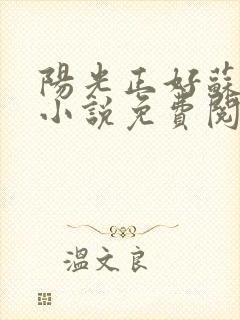 陽光正好蘇
小說免費閱
溫文良